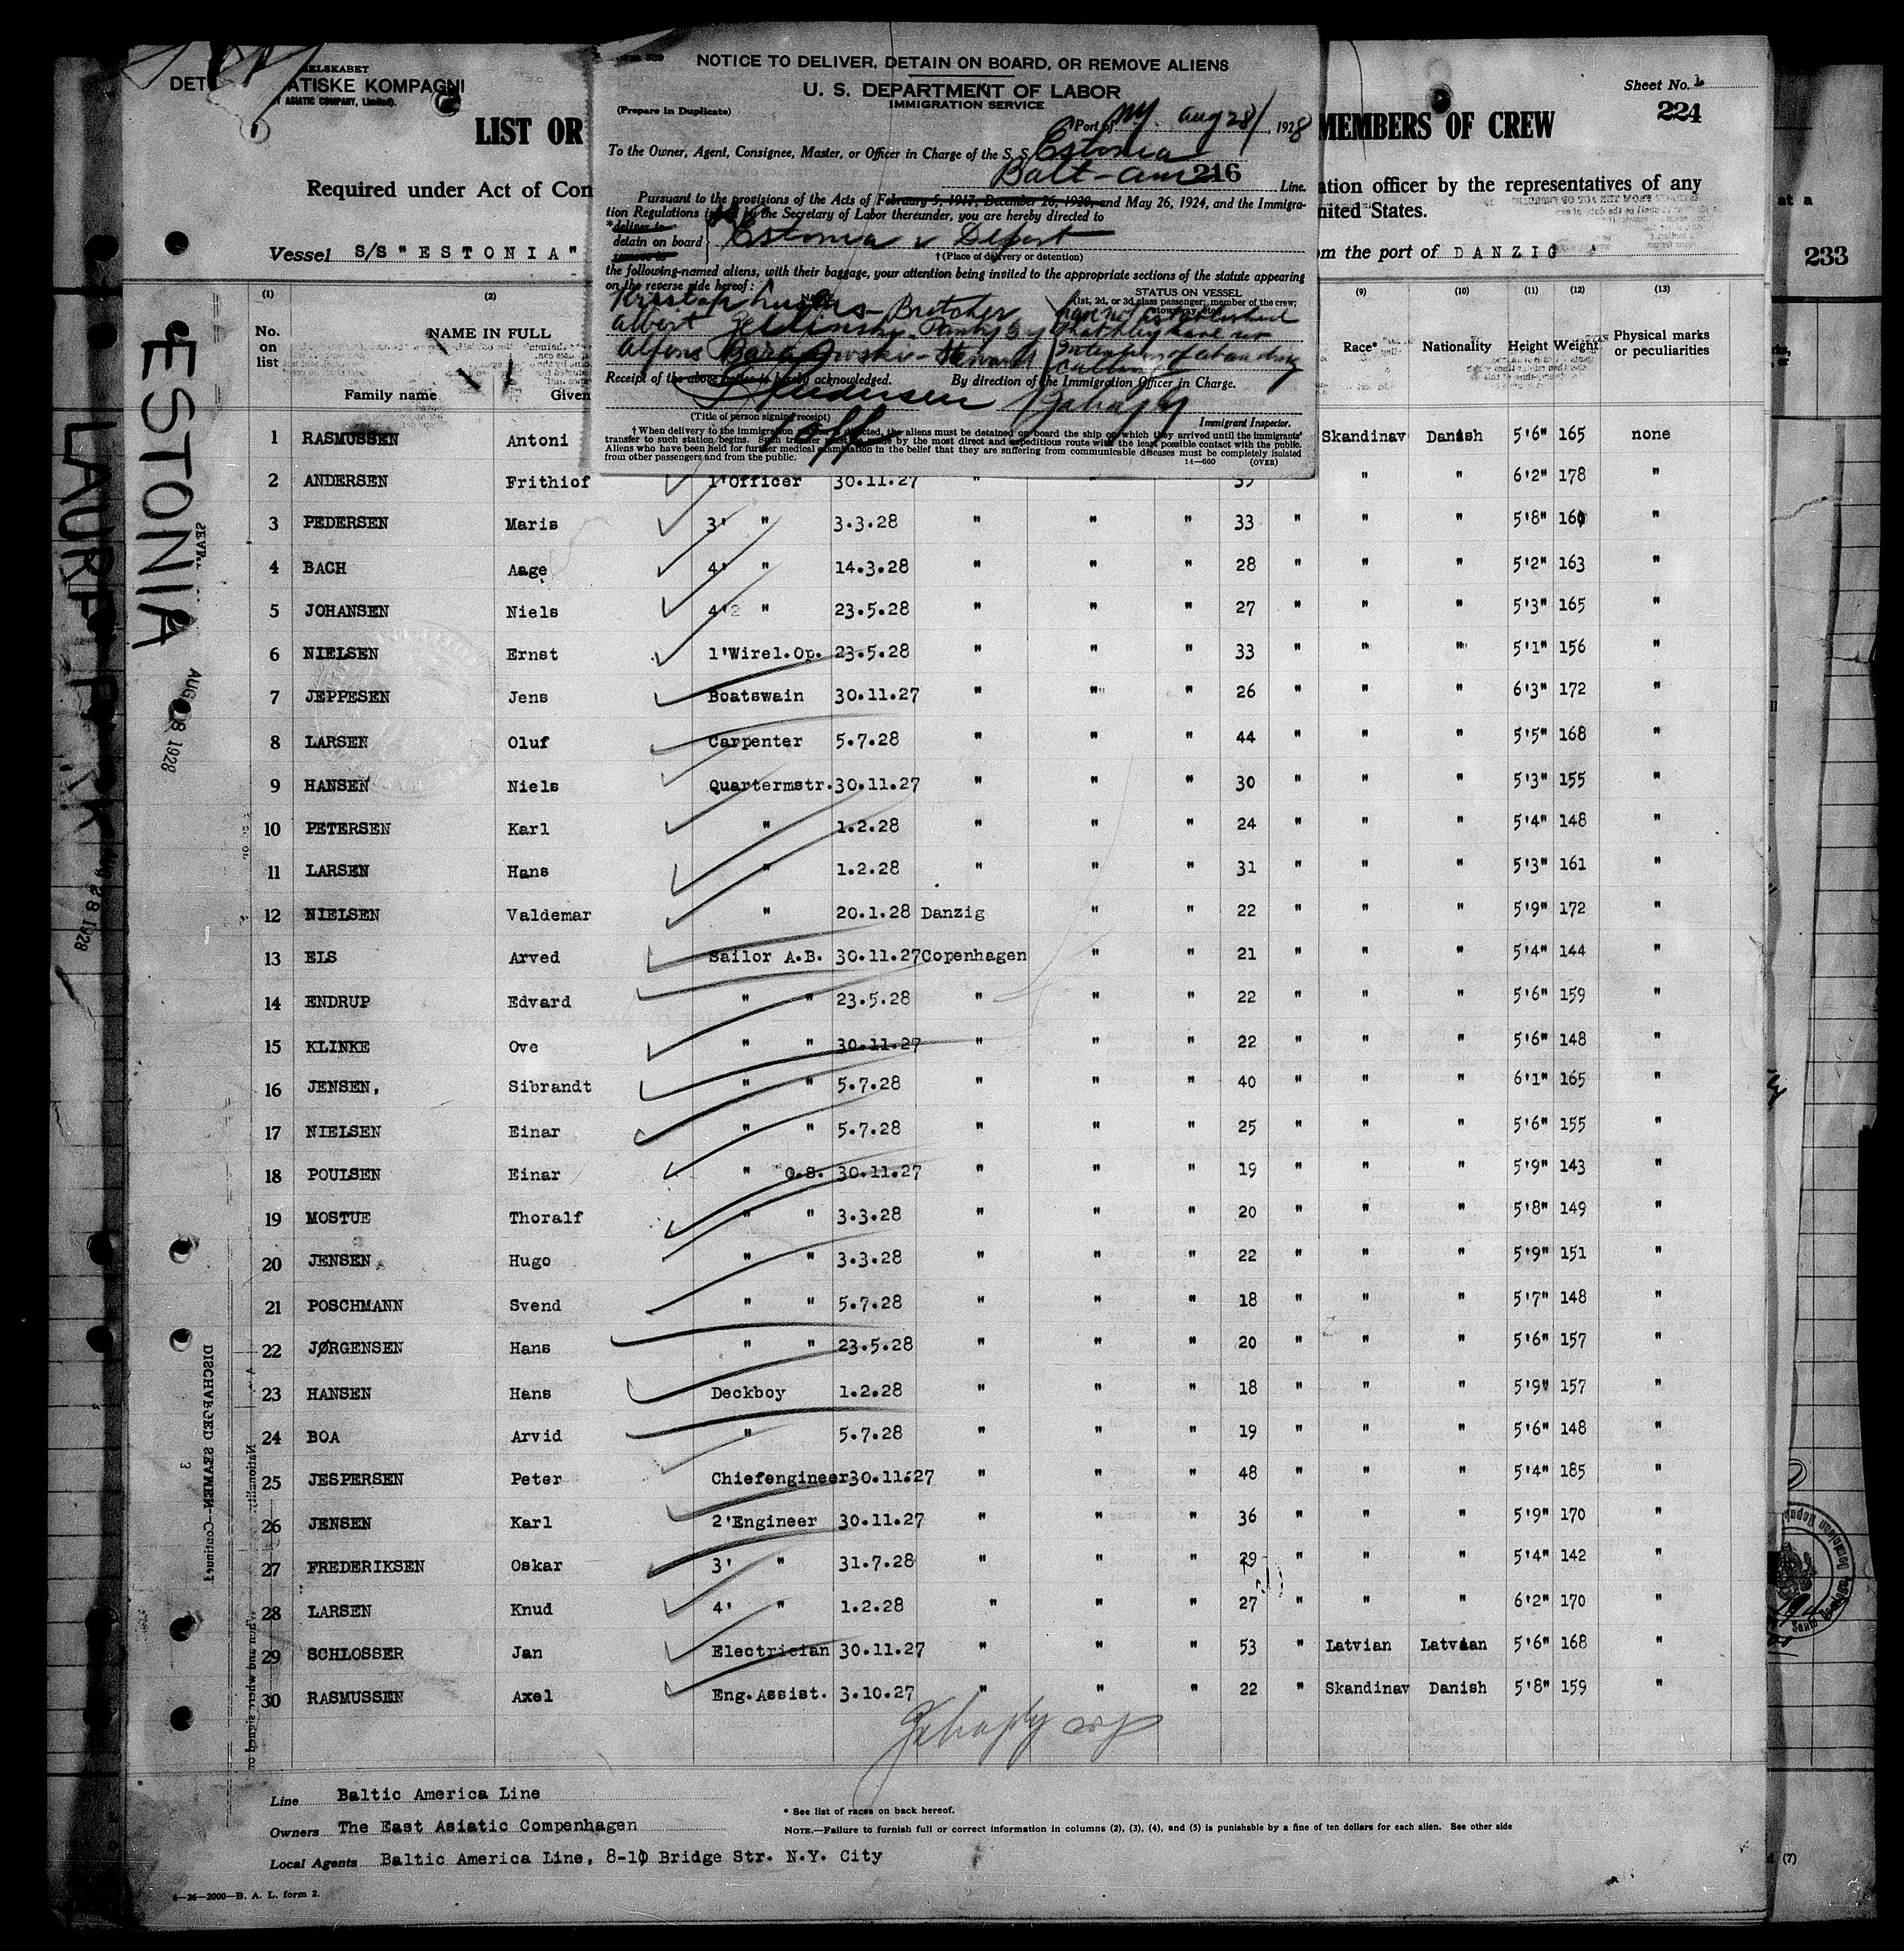 NOTICE TO DELIVER, DETAIN ON BOARD, OR REMOVE ALIENS
U. S. DEPARTMENT OF LABOR
IMMIGRATION SERVICE
(Prepare in Duplicate)
Port of NY Aug 28, 1928
To the Owner, Agent, Consignee, Master, or Officer in Charge of the S. S. Estonia
Balt-Am 216 Line.
Pursuant to the provisions of the Acts of February 5, 1917, December 26, 1920, and May 26, 1924, and the Immigra-
tion Regulations issued by the Secretary of Labor thereunder, you are hereby directed to
*deliver to
detain on board Estonia & Deport
remove to
†(Place of delivery or detention)
the following-named aliens, with their baggage, your attention being invited to the appropriate sections of the statute appearing
on the reverse side hereof:
NAME STATUS ON VESSEL
(1st, 2d, or 3d class passenger; member of the crew; stowaway, etc.)
Butcher have not established
Albert that they have no
Alfons intention of abandoning
calling
Receipt of the above notice is hereby acknowledged. By direction of the Immigration Officer in Charge.
(Title of person signing receipt) Immigrant Inspector.
† When delivery to the immigration station is directed, the aliens must be detained on board the ship on which they arrived until the immigrants'
transfer to such station begins. Such transfer must be made by the most direct and expeditious route with the least possible contact with the public.
Aliens who have been held for further medical examination in the belief that they are suffering from communicable diseases must be completely isolated
from other passengers and from the public.
14—660 (OVER)
DET ELSKABET
ATISKE KOMPAGNI
ASIATIC COMPANY, Limited).
Sheet No. 1
224
LIST OR MEMBERS OF CREW
Required under Act of Con ation officer by the representatives of any
nited States.
Vessel S/S "ESTONIA" om the port of DANZIG
at a
233
(1) (2) (9) (10) (11) (12) (13)
No. on list NAME IN FULL Race* Nationality Height Weight Physical marks or peculiarities
Family name Given
1 RASMUSSEN Antoni Skandinav Danish 5'6" 165 none
2 ANDERSEN Frithiof 1'Officer 30.11.27 " " " 39 " " 6'2" 178 "
3 PEDERSEN Maris 3' " 3.3.28 " " " 33 " " " 5'8" 160 "
4 BACH Aage 4' " 14.3.28 " " " 28 " " " 5'2" 163 "
5 JOHANSEN Niels 4'2 " 23.5.28 " " " 27 " " " 5'3" 165 "
6 NIELSEN Ernst 1'Wirel.Op. 23.5.28 " " " 33 " " " 5'1" 156 "
7 JEPPESEN Jens Boatswain 30.11.27 " " " 26 " " " 6'3" 172 "
8 LARSEN Oluf Carpenter 5.7.28 " " " 44 " " " 5'5" 168 "
9 HANSEN Niels Quartermstr. 30.11.27 " " " 30 " " " 5'3" 155 "
10 PETERSEN Karl " 1.2.28 " " " 24 " " " 5'4" 148 "
11 LARSEN Hans " 1.2.28 " " " 31 " " " 5'3" 161 "
12 NIELSEN Valdemar " 20.1.28 Danzig " " 22 " " " 5'9" 172 "
13 ELS Arved Sailor A.B. 30.11.27 Copenhagen " " 21 " " " 5'4" 144 "
14 ENDRUP Edvard " " 23.5.28 " " " 22 " " " 5'6" 159 "
15 KLINKE Ove " " 30.11.27 " " " 22 " " " 5'6" 148 "
16 JENSEN, Sibrandt " " 5.7.28 " " " 40 " " " 6'1" 165 "
17 NIELSEN Einar " " 5.7.28 " " " 25 " " " 5'6" 155 "
18 POULSEN Einar " O.S. 30.11.27 " " " 19 " " " 5'9" 143 "
19 MOSTUE Thoralf " " 3.3.28 " " " 20 " " " 5'8" 149 "
20 JENSEN Hugo " " 3.3.28 " " " 22 " " " 5'9" 151 "
21 POSCHMANN Svend " " 5.7.28 " " " 18 " " " 5'7" 148 "
22 JØRGENSEN Hans " " 23.5.28 " " " 20 " " " 5'6" 157 "
23 HANSEN Hans Deckboy 1.2.28 " " " 18 " " " 5'9" 157 "
24 BOA Arvid " 5.7.28 " " " 19 " " " 5'6" 148 "
25 JESPERSEN Peter Chiefengineer 30.11.27 " " " 48 " " " 5'4" 185 "
26 JENSEN Karl 2'Engineer 30.11.27 " " " 36 " " " 5'9" 170 "
27 FREDERIKSEN Oskar 3' " 31.7.28 " " " 29 " " " 5'4" 142 "
28 LARSEN Knud 4' " 1.2.28 " " " 27 " " " 6'2" 170 "
29 SCHLOSSER Jan Electrician 30.11.27 " " " 53 " Latvian Latvian 5'6" 168 "
30 RASMUSSEN Axel Eng.Assist. 3.10.27 " " " 22 " Skandinav Danish 5'8" 159 "
Line Baltic America Line
* See list of races on back hereof.
Owners The East Asiatic Compenhagen
NOTE.—Failure to furnish full or correct information in columns (2), (3), (4), and (5) is punishable by a fine of ten dollars for each alien. See other side
Local Agents Baltic America Line, 8-10 Bridge Str. N.Y. City
4—26—2000—B. A. L. form 2.
(7)
ESTONIA
AUG 28 1928
28 1928
DISCHARGED SEAMEN—Continued
3